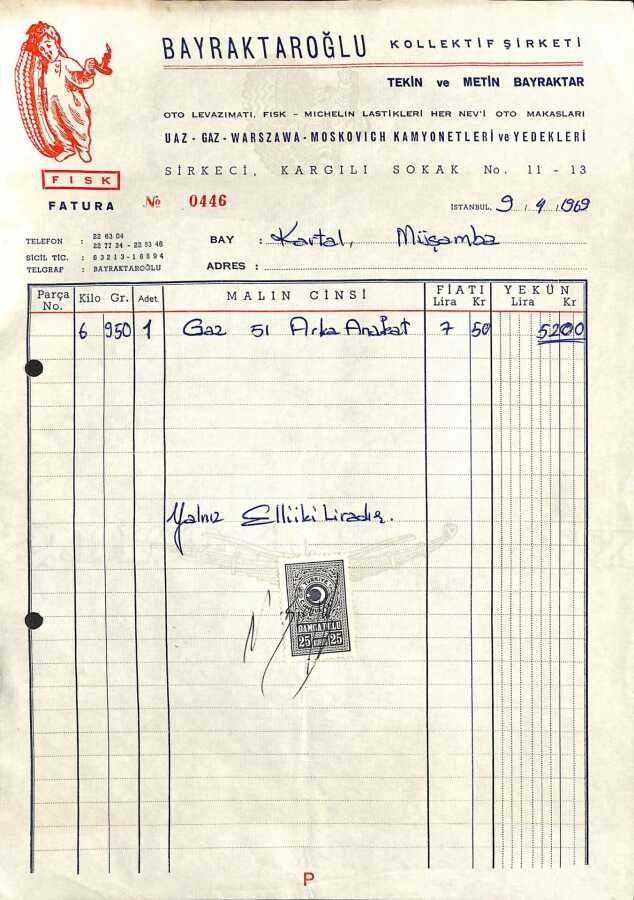 BAYRAKTAROĞLU KOLLEKTİF ŞİRKETİ
TEKİN ve METİN BAYRAKTAR
OTO LEVAZIMATI, FISK - MICHELIN LASTİKLERİ HER NEV'İ OTO MAKASLARI
UAZ - GAZ - WARSZAWA - MOSKOVICH KAMYONETLERİ ve YEDEKLERİ
SİRKECİ, KARGILI SOKAK No. 11 - 13
FISK
FATURA № 0446
İSTANBUL, 9 / 4 / 1969
TELEFON : 22 63 04
22 77 34 - 22 83 46
SİCİL TİC. : 63213-16894
TELGRAF : BAYRAKTAROĞLU
BAY : Kartal, Müşamba
ADRES :
Parça No. Kilo Gr. Adet MALIN CİNSİ FİATI Lira Kr YEKÜN Lira Kr
6 950 1 Gaz 51 Arka Anakat 7 50 5200
Yalnız Elliiki Liradır.
TÜRKİYE
DAMGA PULU
25 KURUŞ 25
P